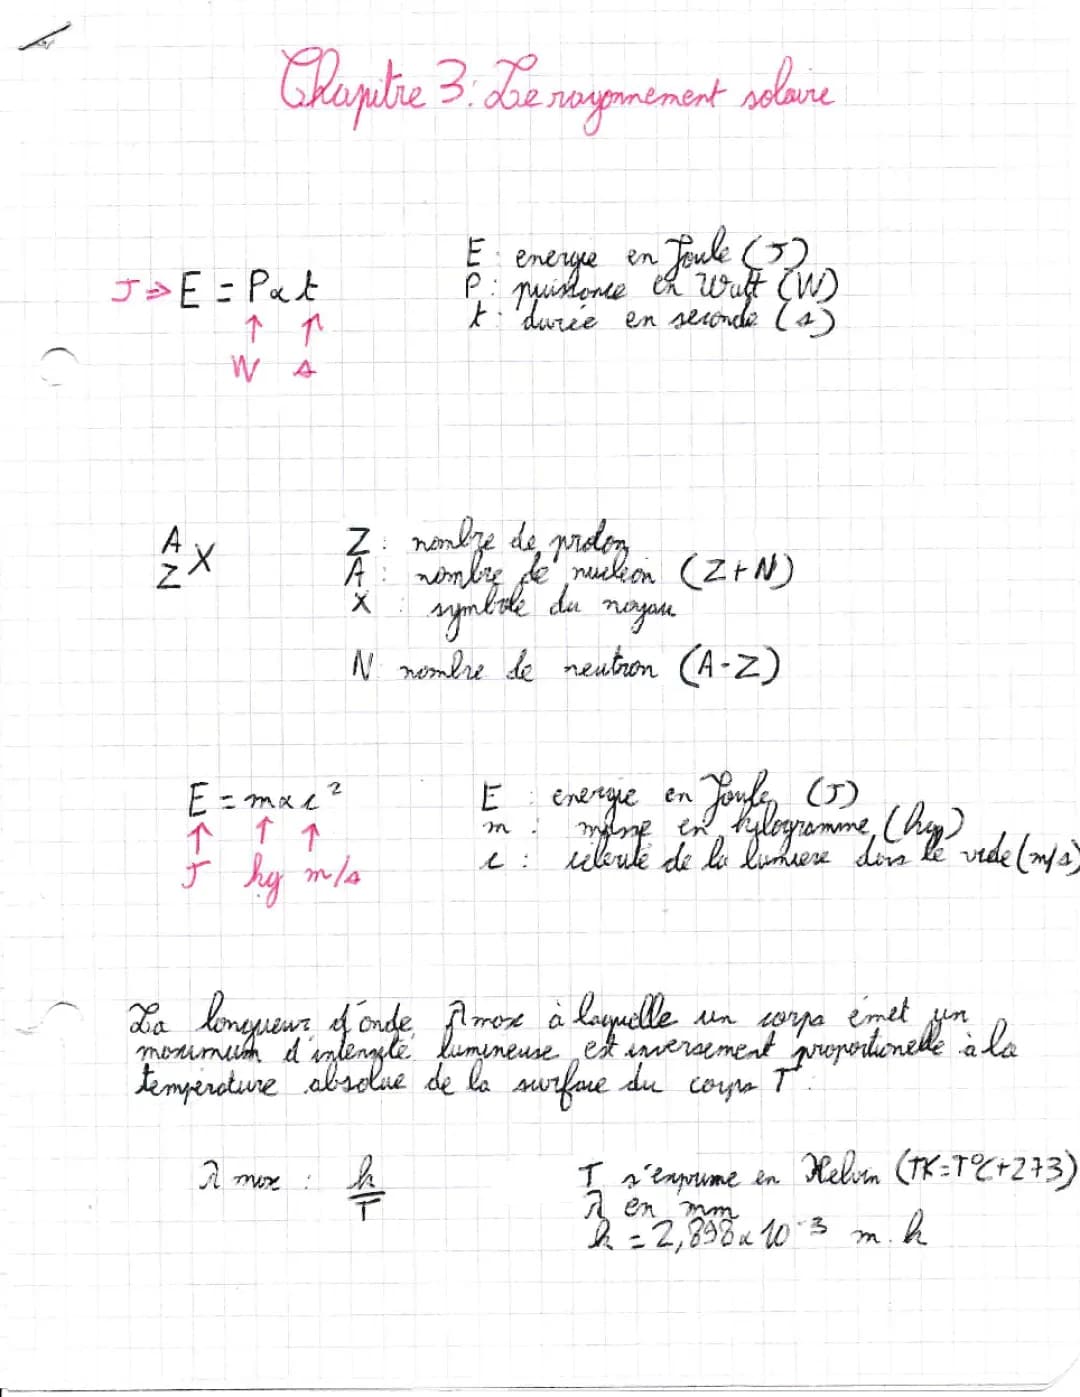 Chapitre 3: Le rayonnement solaire
J ⇒ E = P x t
↑ ↑
W s
E : energie en Joule (J)
P : puissance en Watt (W)
t : durée en seconde (s)
A
Z X
Z : nombre de proton
A : nombre de nucléon (Z+N)
X : symbole du noyau
N : nombre de neutron (A-Z)
E = m x c²
↑ ↑ ↑
J kg m/s
E : energie en Joule (J)
m : masse en kylogramme (kg)
c : célérité de la lumiere dans le vide (m/s)
La longueur d'onde λ max à laquelle un corps émet un
maximum d'intensité lumineuse est inversement proportionelle à la
température absolue de la surface du corps T.
λ max : k/T
T s'exprime en Kelvin (TK=T°C+273)
λ en mm
k = 2,898 x 10⁻³ m.k